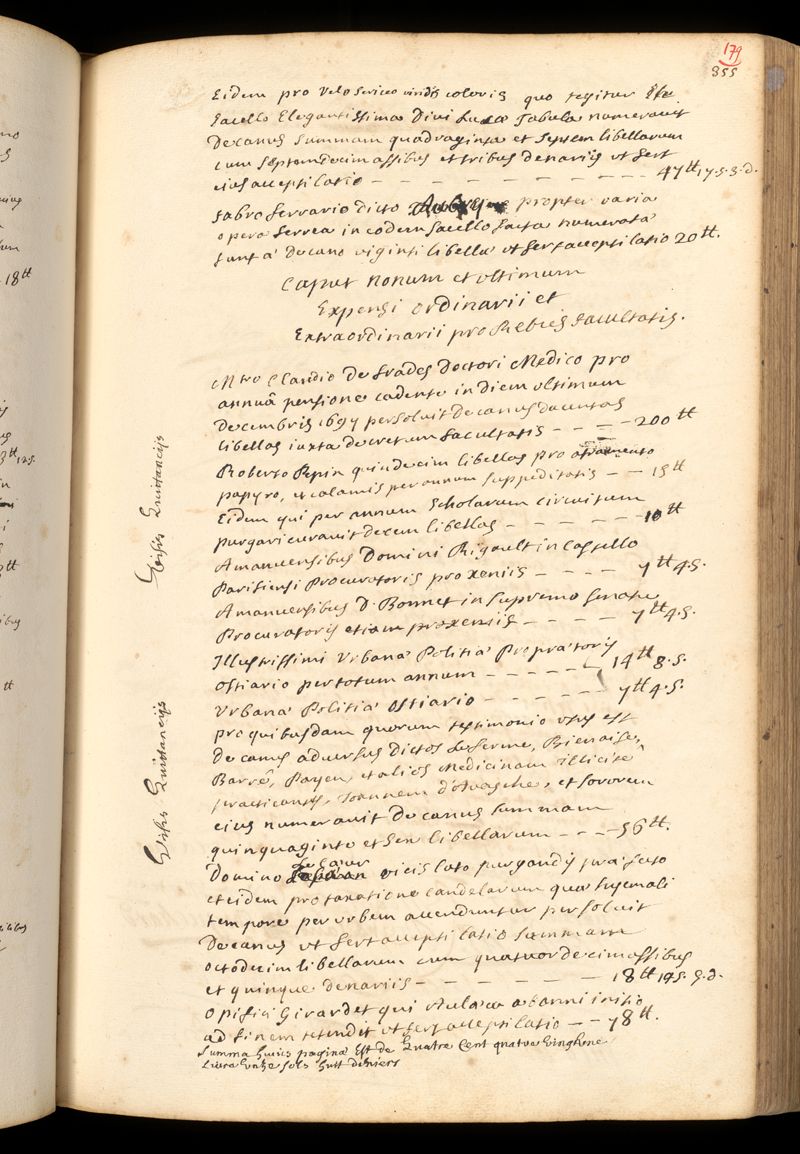 179
355
Eidem pro velo serico viridis coloris quo tegitur
sacello Elegantissima Divi Lucæ Tabula numeravit
Decanus summam quadraginta et septem libellarum
cum septemdecim assibus et tribus denariis ut fert
eius acceptilatio - - - - - - - - 47tt 17. s. 3. d.
fabro ferrario dicto propter varia
opera ferrea in eodem sacello facta numeratæ
sunt a Decano viginti libellæ ut fert acceptilatio 20tt.
Caput nonum et ultimum
Expensi ordinarii et
Extraordinarii pro Rebus facultatis.
Mtro Claudio De frades Doctori Medico pro
annuâ pensione cadente in diem ultimum
Decembris 1697 persoluit decanus ducentas
libellas iuxta decretum facultatis - - - - 200tt
Roberto Repin quindecim libellas pro atramento
papyro, et calamis per annum suppeditatis - - 15tt
Eidem qui per annum Scholarum circuitum
purgari curavit decem libellas - - - - - - 10tt
Amanuensibus Domini Rigault in Castello
Parisiensi Procuratoris pro xeniis - - - - 7tt 4. s.
Amanuensibus D. Bonnet in supremo senatu
Procuratoris etiam pro xeniis - - - - - 7tt 4. s.
Illustrissimi Urbanæ Politiæ Proprætoris
ostiario per totum annum - - - - - - 14tt 8. s.
Urbanæ Politiæ ostiario - - - - - - - 7tt 4. s.
pro quibusdam quorum testimonio usus est
decanus adversus dictos Bienaise,
Barré, Payen et alios Medicinam illicite
practicantes, Joannem et sororem
eius numeravit decanus summam
quinquaginta et sex libellarum - - - - 56tt.
Domino vicis lato purgandis præfecto
et eidem pro taxatione candelarum quæ hyemali
tempore per urbem accenduntur persoluit
Decanus ut fert acceptilatio summam
octodecim libellarum cum quatuordecim assibus
et quinque denariis - - - - - - - - 18tt 14 s. 5. d.
opifici Girardet qui aulæa ab anni initio
ad finem tetendit ut fert acceptilatio - - 78tt.
Summa huius paginæ Est de Quatre Cent quatre vingt
Livres sols huit deniers
Visis Quittanciis
Visis Quittanciis